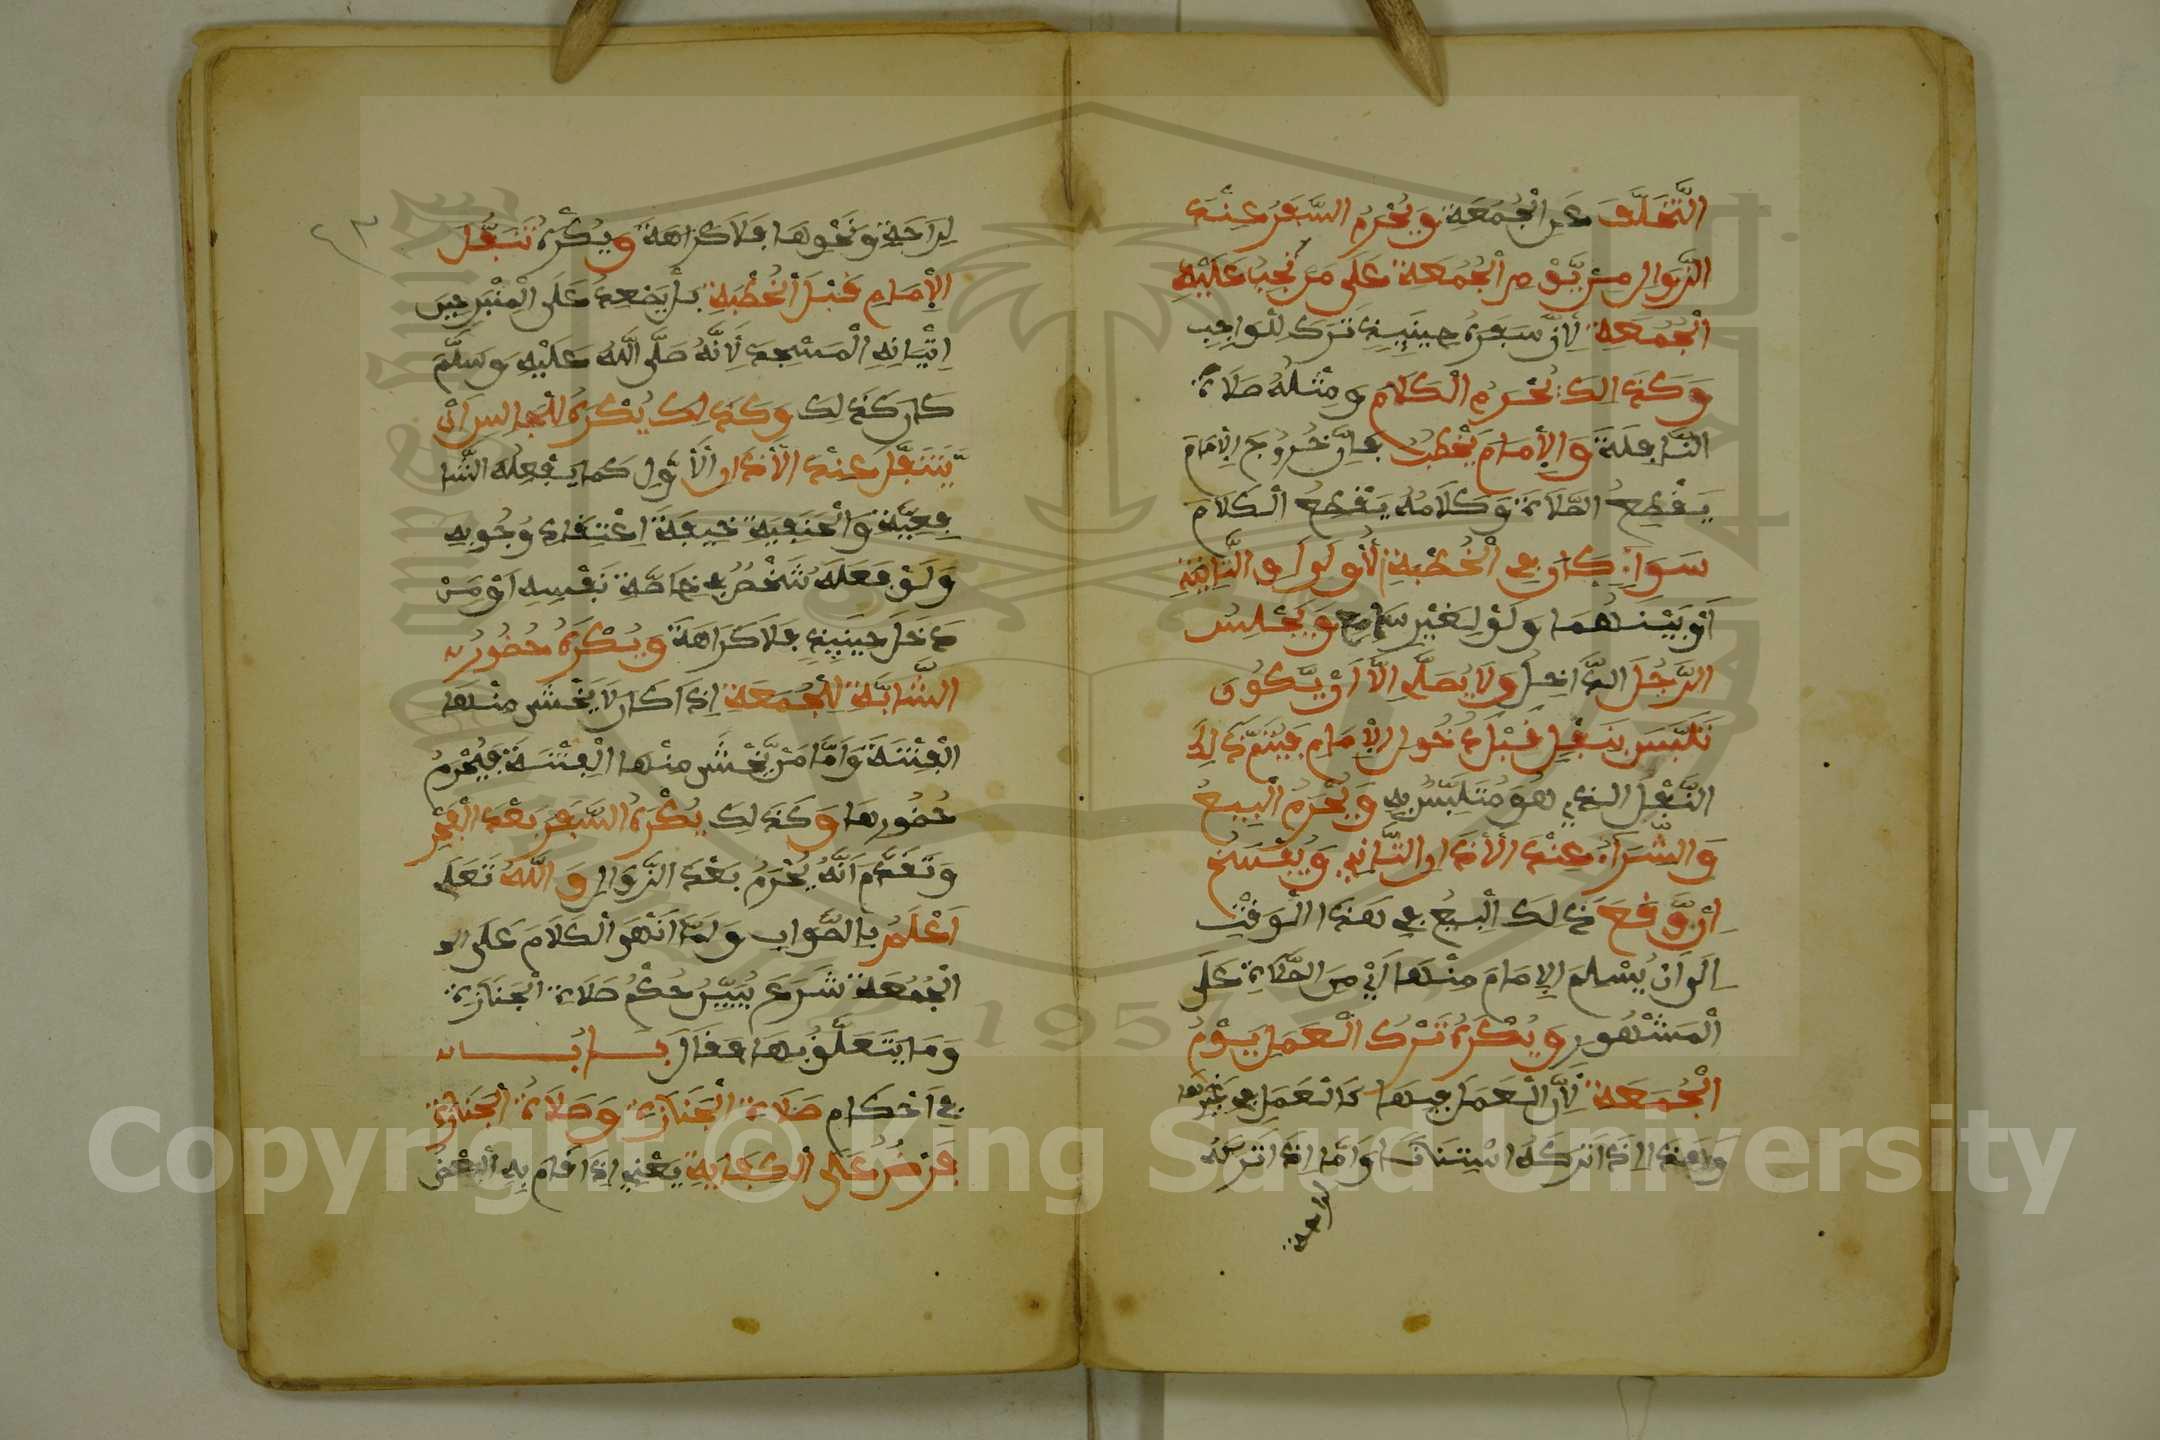 التَّخَلُّفَ عَنِ الْجُمُعَةِ وَيَحْرُمُ السَّفَرُ عِنْدَ
الزَّوَالِ مِنْ يَّوْمِ الْجُمُعَةِ عَلَى مَن تَجِبُ عَلَيْهِ
الْجُمُعَةُ لِأَنَّ سَفَرَهُ حِينَئِذٍ تَرَكَ لِلْوَاجِبِ
وَكَذَالِكَ يَحْرُمُ الْكَلَامُ وَمِثْلُهُ صَلَاةُ
النَّافِلَةِ وَالْإِمَامُ يَخْطُبُ فَإِنَّ خُرُوجَ الْإِمَامِ
يَقْطَعُ الصَّلَاةَ وَكَلَامُهُ يَقْطَعُ الْكَلَامَ
سَوَاءٌ كَانَ فِي الْخُطْبَةِ الْأُولَى أَوِ الثَّانِيَةِ
أَوْ بَيْنَهُمَا وَلَوْ لِغَيْرِ سَامِعٍ وَيَجْلِسُ
الرَّجُلُ الدَّاخِلُ وَلَا يُصَلِّي إِلَّا أَنْ يَّكُونَ
تَلَبَّسَ بِنَفْلٍ قَبْلَ دُخُولِ الْإِمَامِ فَيُتِمَّ ذَلِكَ
النَّفْلَ الذِي هُوَ مُتَلَبِّسٌ بِهِ وَيَحْرُمُ الْبَيْعُ
وَالشِّرَاءُ عِنْدَ الْأَذَانِ الثَّانِي وَيُفْسَخُ
إِنْ وَّقَعَ ذَلِكَ الْبَيْعُ فِي هَذَا الْوَقْتِ
إِلَى أَنْ يُسْلِمَ الْإِمَامَ مِنْهَا أَيْ مِنَ الصَّلَاةِ عَلَى
الْمَشْهُورِ وَيُكْرَهُ تَرْكُ الْعَمَلِ يَوْمَ
الْجُمُعَةِ لِأَنَّ الْعَمَلَ فِيهَا كَالْعَمَلِ فِي غَيْرِهَا
وَهَذَا إِذَا تَرَكَهُ اسْتِنَانًا وَأَمَّا إِذَا تَرَكَهُ
لراحة
لِرَاحَةٍ وَنَحْوِهَا فَلَا كَرَاهَةَ وَيُكْرَهُ تَنَفُّلُ
الْإِمَامِ قَبْلَ الْخُطْبَةِ بَلْ يَضَعُهُ عَلَى الْمِنْبَرِ حِينَ
إِتْيَانِهِ الْمَسْجِدَ لِأَنَّهُ صَلَّى اللَّهُ عَلَيْهِ وَسَلَّمَ
كَانَ كَذَلِكَ وَكَذَلِكَ يُكْرَهُ لِلْجَالِسِ أَنْ
يَّتَنَفَّلَ عِنْدَ الْأَذَانِ الْأَوَّلِ كَمَا يَفْعَلُهُ الشَّا
فِعِيَّةُ وَالْحَنَفِيَّةُ خِيفَةَ اعْتِقَادِ وُجُوبِهِ
وَلَوْ فَعَلَهُ شَخْصٌ فِي خَاصَّةِ نَفْسِهِ أَوْ مَنْ
دَخَلَ حِينَئِذٍ فَلَا كَرَاهَةَ وَيُكْرَهُ حُضُورُ
الشَّابَّةِ لِلْجُمُعَةِ إِذَا كَانَ لَا يَخْشَى مِنْهَا
الْفِتْنَةَ وَأَمَّا مَنْ يَّخْشَى مِنْهَا الْفِتْنَةَ فَيَحْرُمُ
حُضُورُهَا وَكَذَلِكَ يُكْرَهُ السَّفَرُ بَعْدَ الْفَجْرِ
وَتَقَدَّمَ أَنَّهُ يَحْرُمُ بَعْدَ الزَّوَالِ وَاللَّهُ تَعَلَى
أَعْلَمُ بِالصَّوَابِ وَلَمَّا أَنْهَى الْكَلَامَ عَلَى
الْجُمُعَةِ شَرَعَ يُبَيِّنُ حُكْمَ صَلَاةِ الْجَنَازَةِ
وَمَا يَتَعَلَّقُ بِهَا فَقَالَ بَابٌ
فِي أَحْكَامِ صَلَاةِ الْجَنَازَةِ وَصَلَاةُ الْجَنَازَةِ
فَرْضٌ عَلَى الْكِفَايَةِ يَعْنِي إِذَا قَامَ بِهِ الْبَعْضُ
1957
Copyright © King Saud University